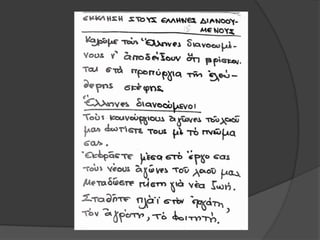 ΕΚΚΛΗΣΗ ΣΤΟΥΣ ΕΛΛΗΝΕΣ ΔΙΑΝΟΟΥ-
ΜΕΝΟΥΣ
Καλοῦμε τοὺς Ἕλληνες διανοουμέ-
νους ν' ἀποδείξουν ὅτι βρίσκον.
ται στὰ προπύργια τῆς ἐλευ-
θερης σκέψης
Ἕλληνες διανοούμενοι!
Τοὺς καινούργιους ἀγῶνες τοῦ λαοῦ
μας φωτίστε τους μὲ τὸ πνεῦμα
σας.
Ἐκφράστε μέσα στὸ ἔργο σας
τοὺς νέους ἀγῶνες τοῦ λαοῦ μας.
Μεταδῶστε πίστη γιὰ νέα ζωή.
Σταθῆτε πλάϊ στὸν ἐργάτη,
τὸν ἀγρότη, τὸ φοιτητή.